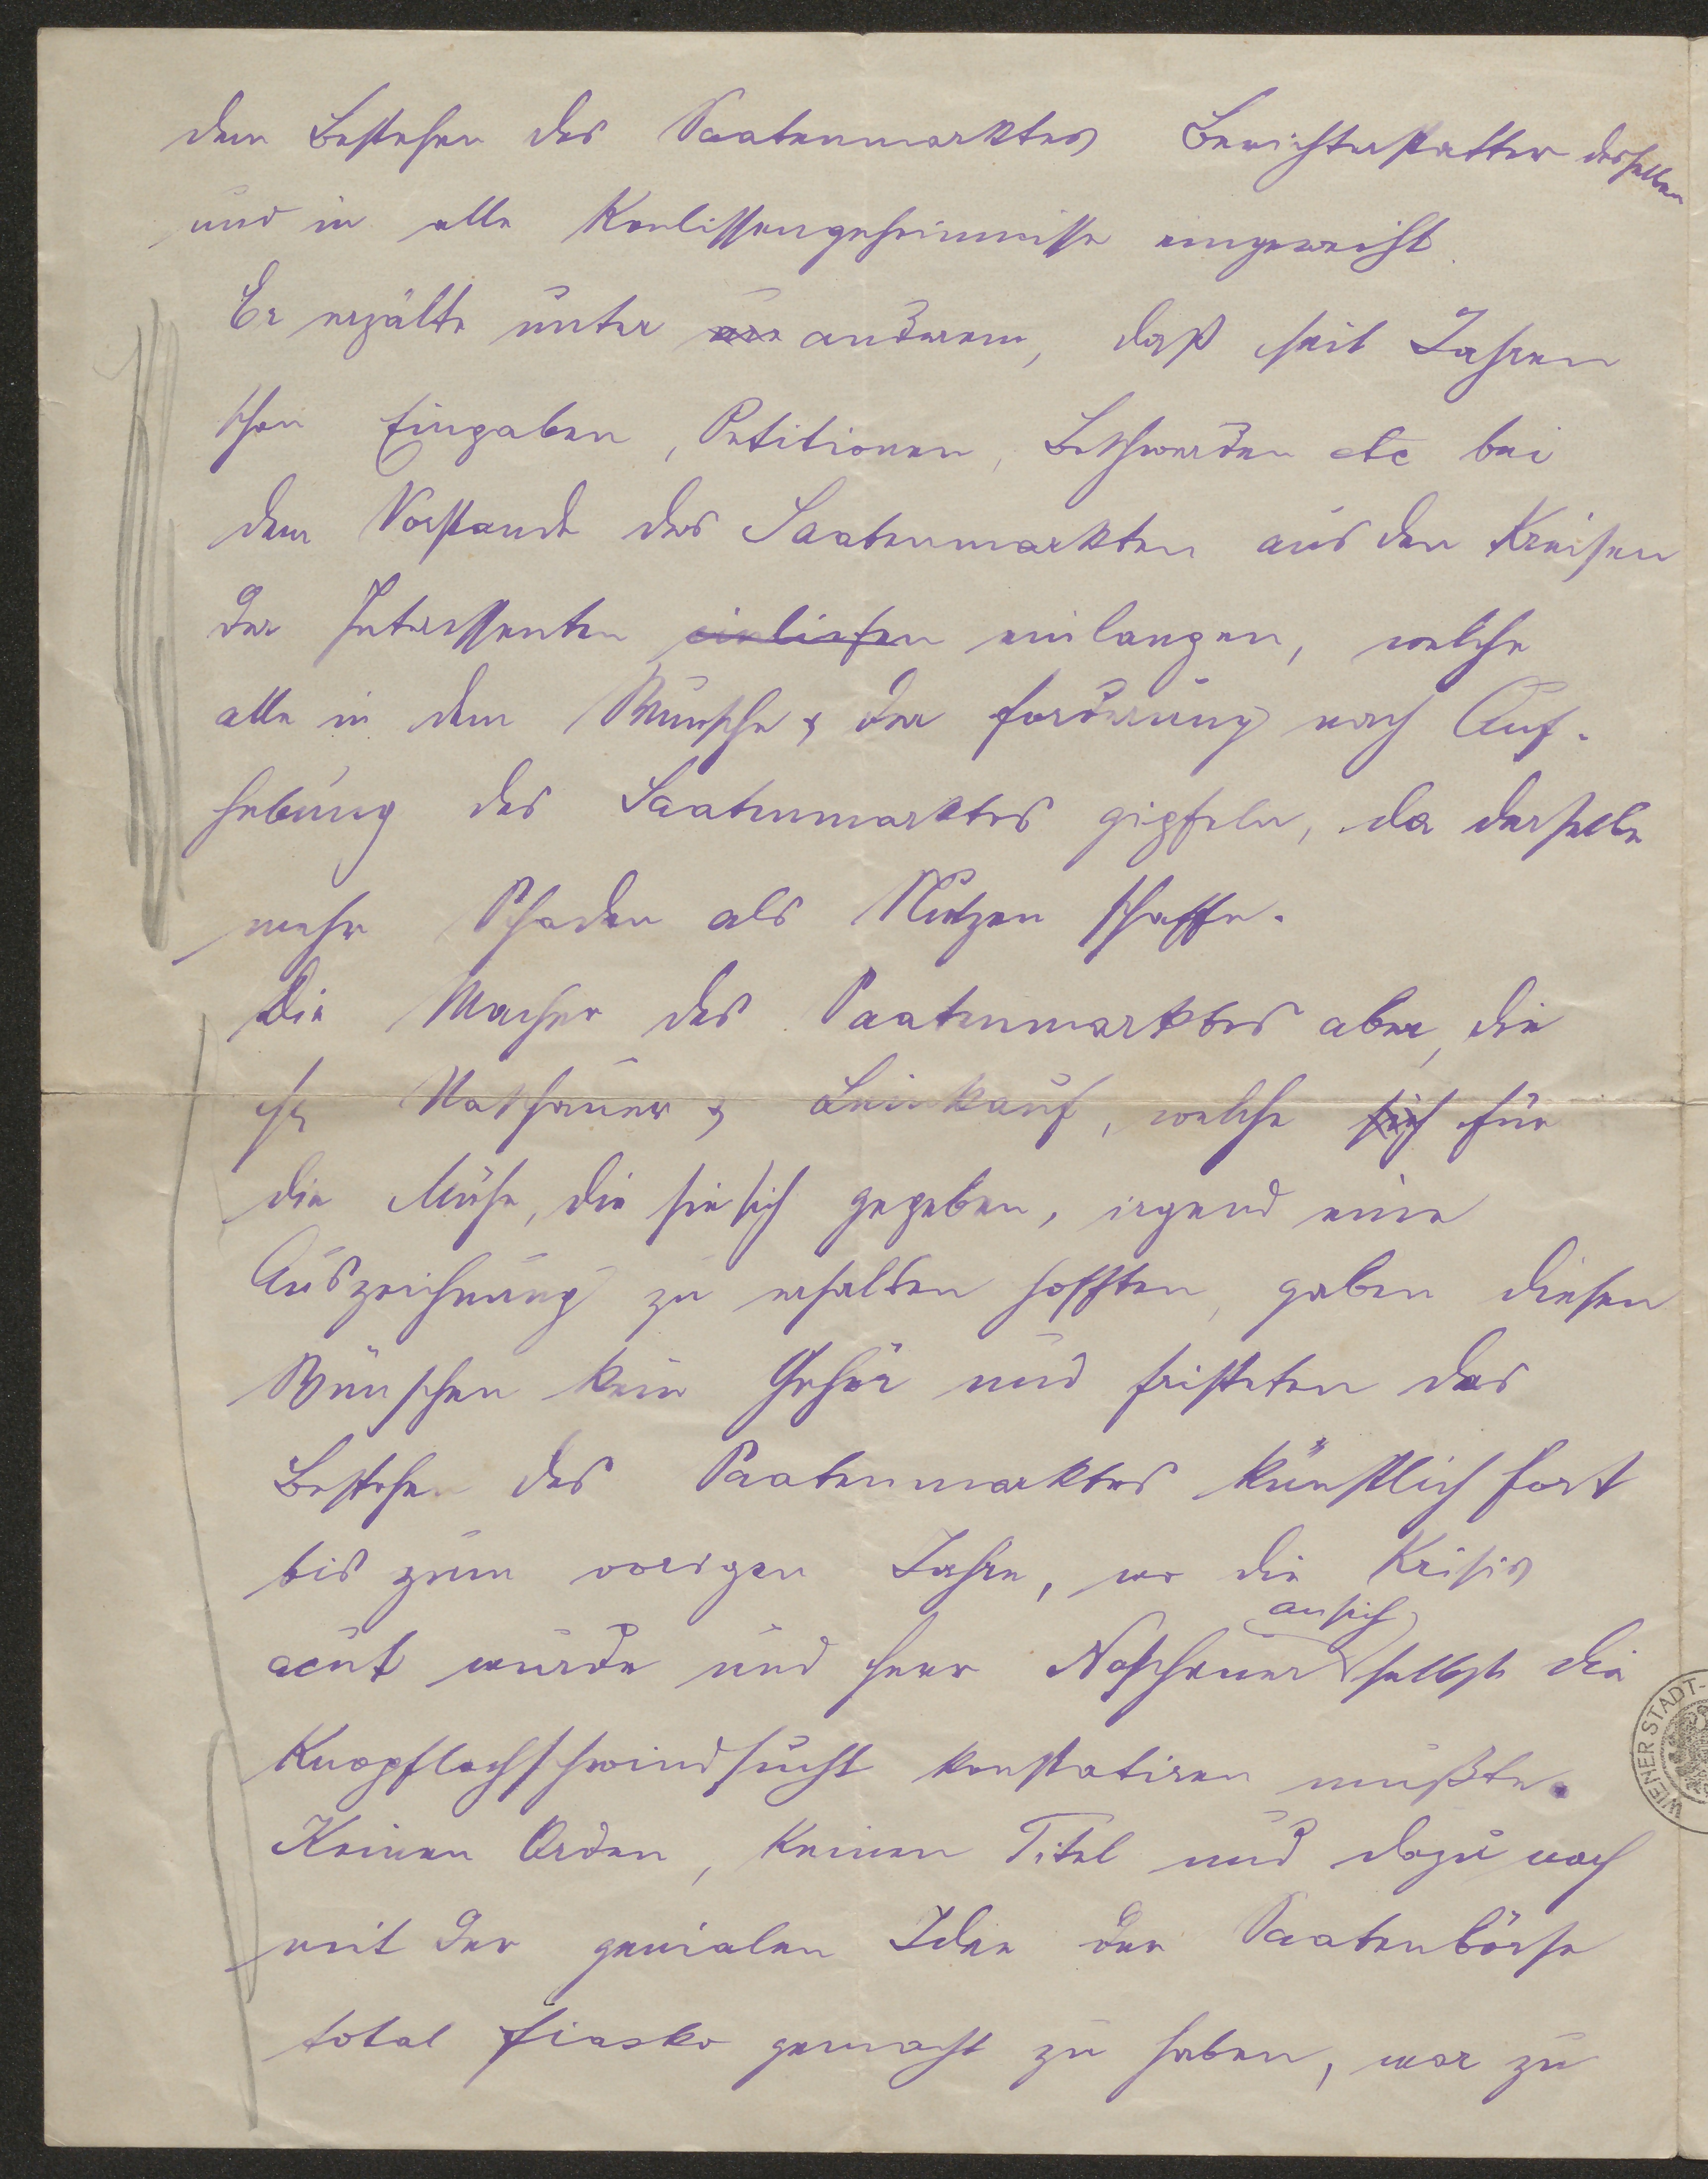 dem Bestehen des Saatenmarktes Berichterstatter desselben
und in alle Koulissengeheimnisse eingeweiht.
Er erzälte unter anderem, daß seit Jahren
schon Eingaben, Petitionen, Beschwerden etc bei
dem Vorstande des Saatenmarktes aus den Kreisen
der Interessenten einliefen einlangen, welche
alle in dem Wunsche & der Forderung nach Auf-
hebung des Saatenmarktes gipfeln, da derselbe
mehr Schaden als Nutzen schaffe.
Die Macher des Saatenmarktes aber, die
H Naschauer & Leinkauf, welche sich für
die Mühe, die sie sich gegeben, irgend eine
Auszeichnung zu erhalten hofften, gaben diesen
Wünschen kein Gehör und fristeten das
Bestehen des Saatenmarktes künstlich fort
bis zum vorigen Jahre, wo die Krisis
acut wurde und Herr Naschauer an sich selbst die
Knopflochschwindsucht konstatiren mußte.
Keinen Orden, keinen Titel und dazu noch
mit der genialen Idee der Saatenbörse
total Fiasko gemacht zu haben, war zu
WIENER STADT-